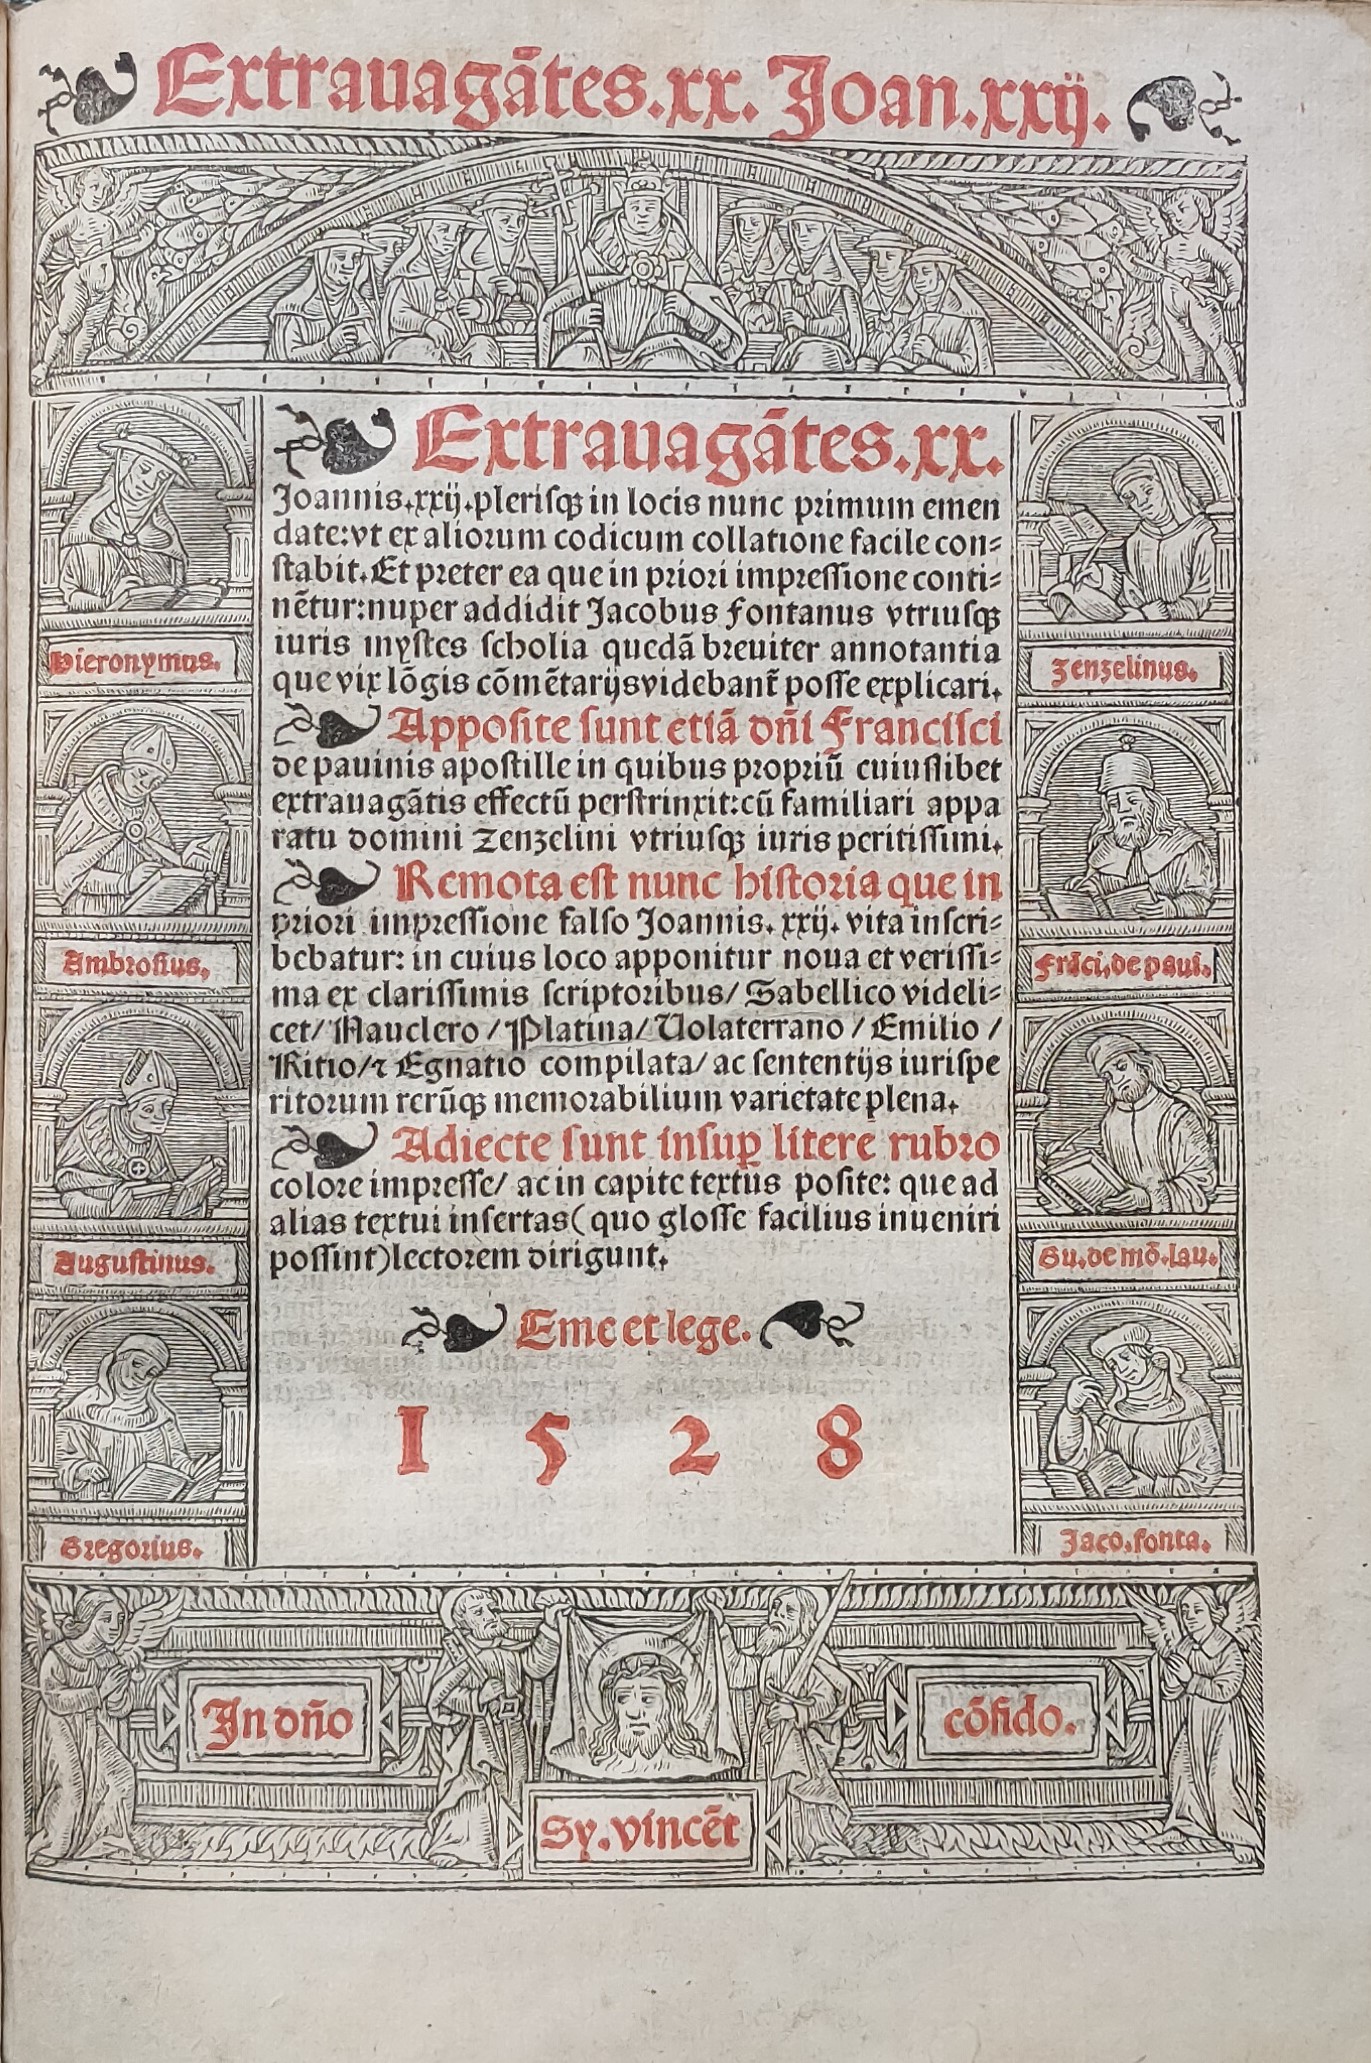 Extrauagātes.xx. Joan.xxij.
Extrauagātes.xx.
Joannis.xxij.pleriſqꝫ in locis nunc primum emen
date:vt ex aliorum codicum collatione facile con⸗
ſtabit.Et preter ea que in priori impreſſione conti⸗
nētur:nuper addidit Jacobus fontanus vtriuſqꝫ
iuris myſtes ſcholia quedā breuiter annotantia
que vix lōgis cōmētarijs videbant̄ poſſe explicari.
Appoſite ſunt etiā dn̄i Franciſci
de pauinis apoſtille in quibus propriū cuiuſlibet
extrauagātis effectū perſtrinxit:cū familiari appa
ratu domini Zenzelini vtriuſqꝫ iuris peritiſſimi.
Remota eſt nunc hiſtoria que in
priori impreſſione falſo Joannis.xxij.vita inſcri⸗
bebatur: in cuius loco apponitur noua et veriſſi⸗
ma ex clariſſimis ſcriptoribus/ Sabellico videli⸗
cet/ Nauclero / Platina/ Volaterrano / Emilio /
Ritio/⁊ Egnatio compilata/ ac ſententijs iuriſpe
ritorum rerūqꝫ memorabilium varietate plena.
Adiecte ſunt inſuꝑ litere rubro
colore impreſſe/ ac in capite textus poſite: que ad
alias textui inſertas(quo gloſſe facilius inueniri
poſſint)lectorem dirigunt.
Eme et lege.
1 5 2 8
Hieronymus.
Ambroſius.
Auguſtinus.
Gregorius.
Zenzelinus.
Frāci.de paui.
Gu.de mō.lau.
Jaco.fonta.
In dn̄o
cōfido.
Sy.vincēt